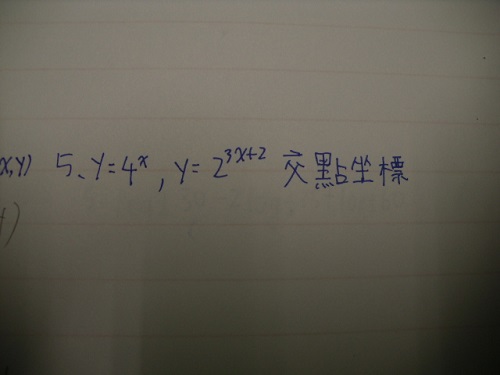 x,y) 5、y=4^x, y=2^{3x+2} 交點坐標